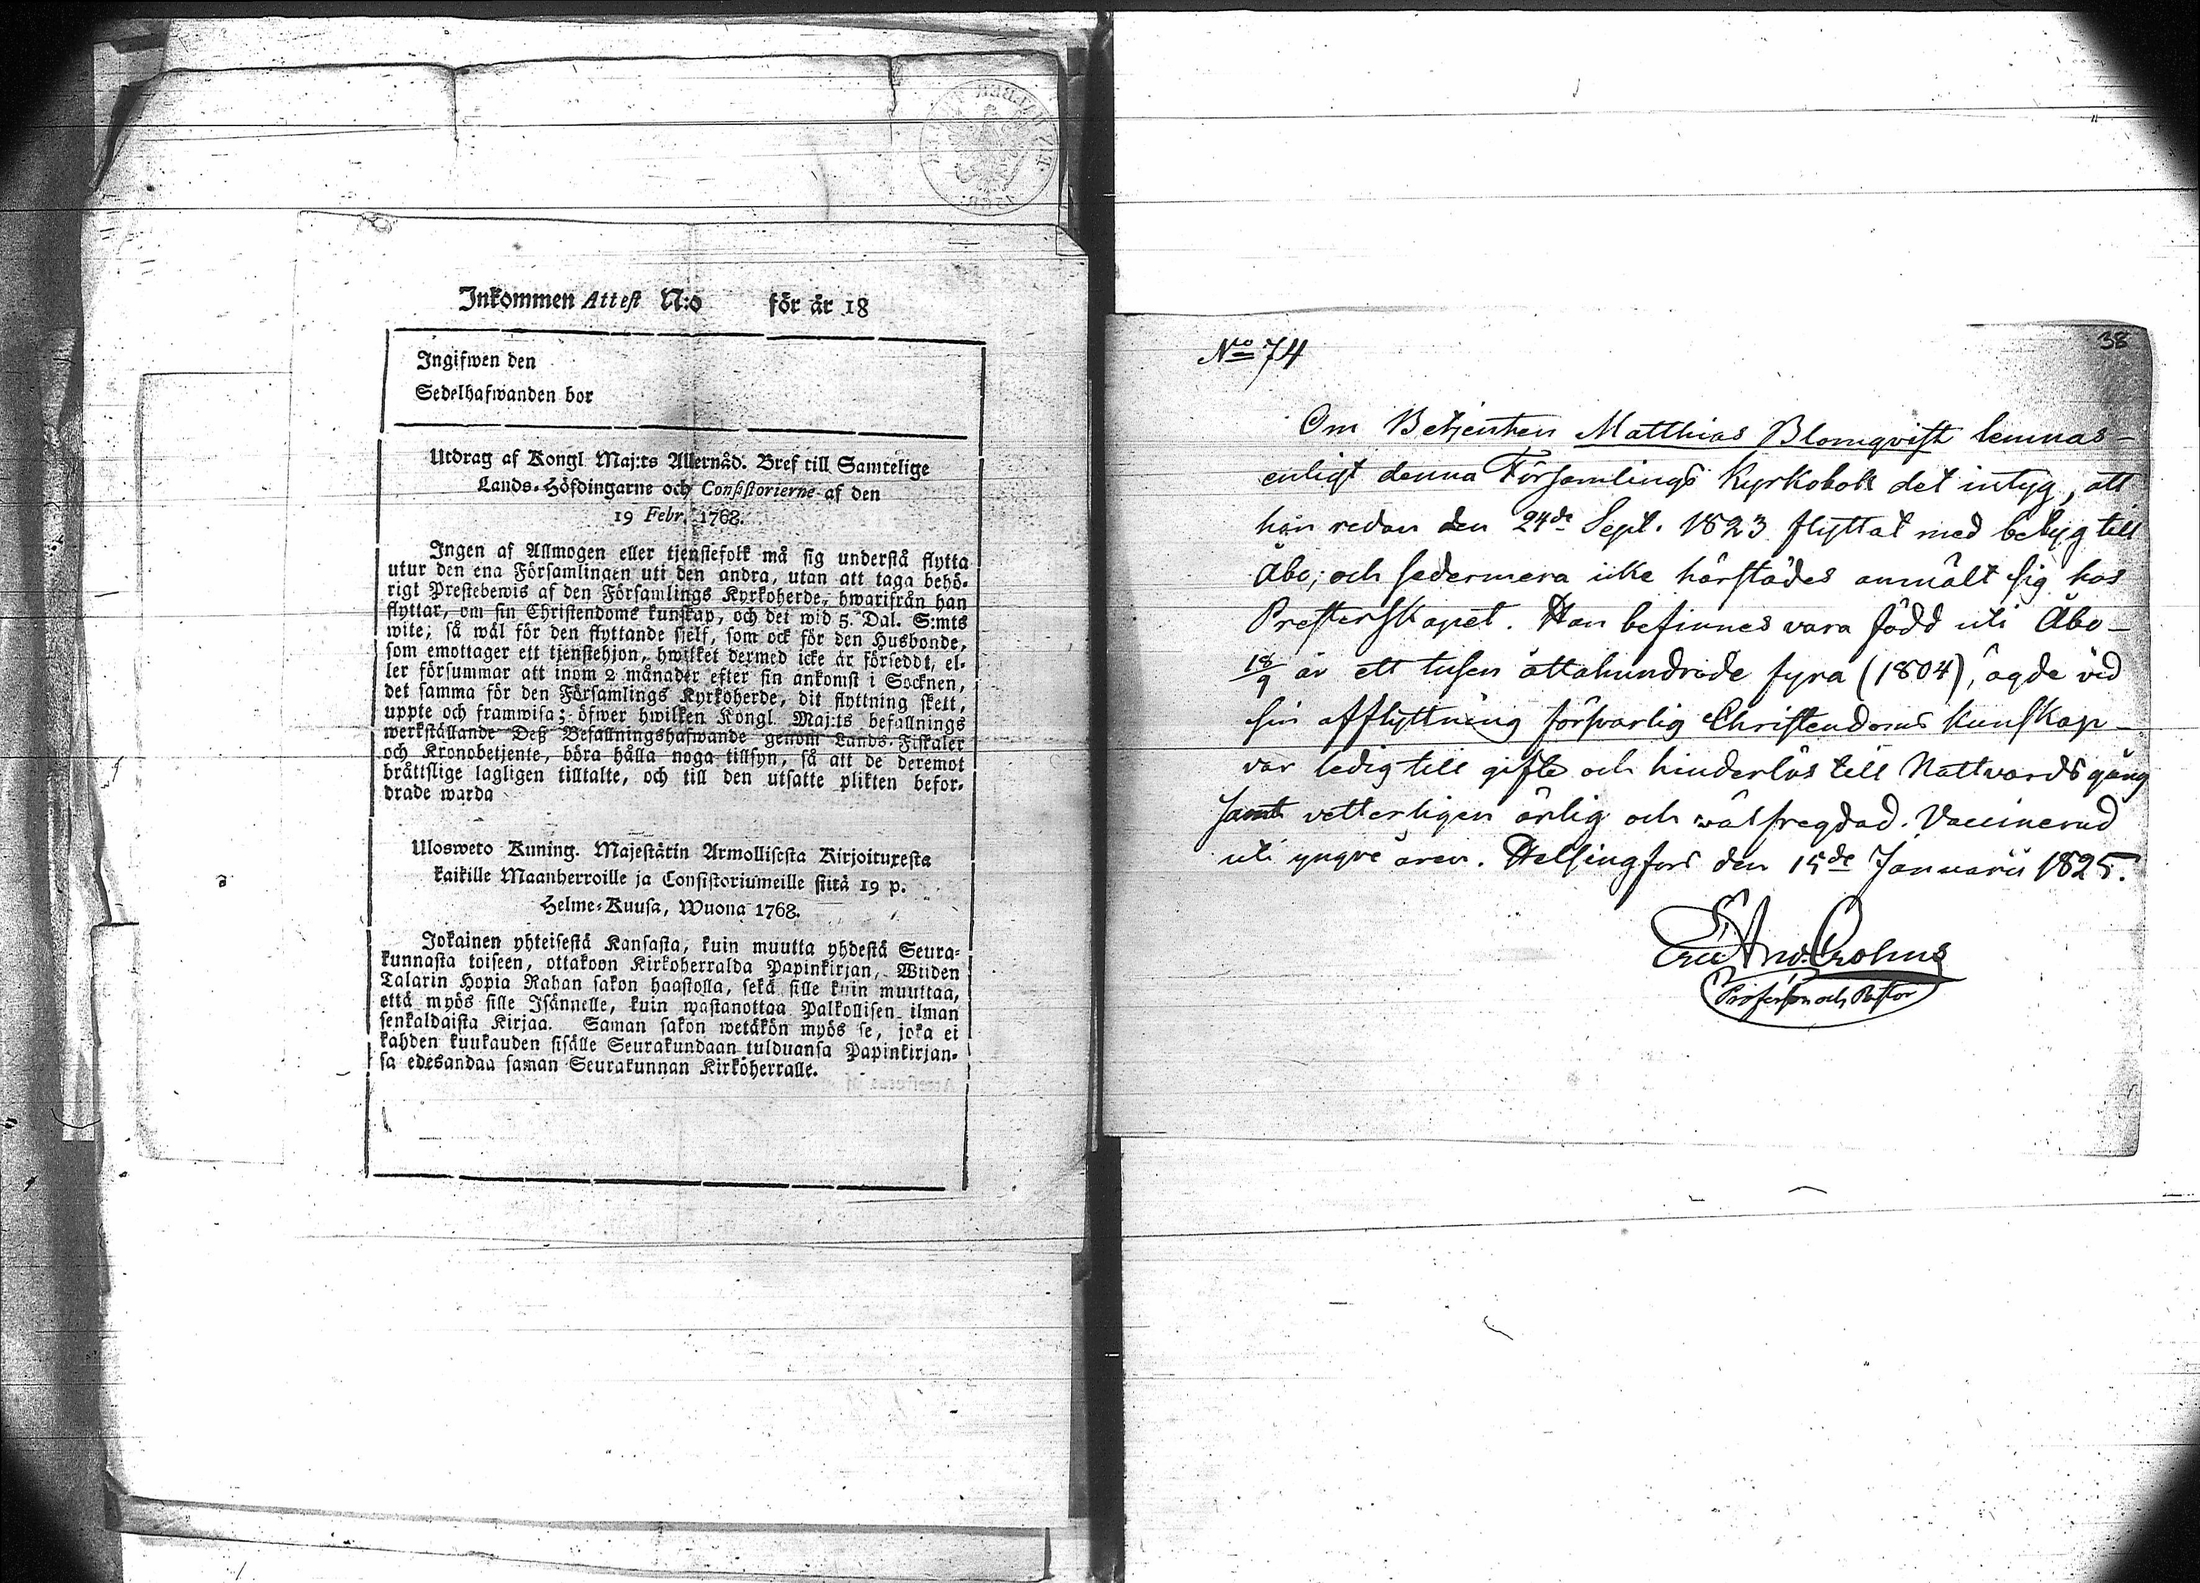 Inkommen Attest N:o för år 18
Ingifwen den
Sedelhafwanden bor
Utdrag af Kongl Maj:ts Allernåd. Bref till Samtelige
Lands-Höfdingarne och Consistorierne af den
19 Febr. 1768.
Ingen af Allmogen eller tjenstefolk må sig understå flytta
utur den ena Församlingen uti den andra, utan att taga behö-
rigt Prestebewis af den Församlings Kyrkoherde, hwarifrån han
flyttar, om sin Christendoms kunskap, och det wid 5. Dal. S:mts
wite; så wäl för den flyttande sjelf, som ock för den Husbonde,
som emottager ett tjenstehjon, hwilket dermed icke är förseddt, el-
ler försummar att inom 2 månader efter sin ankomst i Socknen,
det samma för den Församlings Kyrkoherde, dit flyttning skett,
uppte och framwisa; öfwer hwilken Kongl Maj:ts befallnings
werkställande Deß Befallningshafwande genom Lands-Fiskaler
och Kronobetjente, böra hålla noga tillsyn, så att de deremot
bråttslige lagligen tilltalte, och till den utsatte plikten befor-
drade warda
Ulosweto Kuning. Majestätin Armollisesta Kirjoituxesta
kaikille Maanherroille ja Consistoriumeille siitä 19 p.
Helme-Kuusa, Wuona 1768.
Jokainen yhteisestä Kansasta, kuin muutta yhdestä Seura-
kunnasta toiseen, ottakoon Kirkoherralda Papinkirjan, Wiiden
Talarin Hopia Rahan sakon haastolla, sekä sille kuin muuttaa,
että myös sille Isännelle, kuin wastanottaa Palkollisen ilman
senkaldaista Kirjaa. Saman sakon wetäkön myös se, joka ei
kahden kuukauden sisälle Seurakundaan tulduansa Papinkirjan-
sa edesandaa saman Seurakunnan Kirkoherralle.
38
No 74
Om Betjenten Matthias Blomqvist lemnas
enligt denna Församlings Kyrkobok det intyg, att
han redan den 24de Sept. 1823 flyttat med betyg till
Åbo; och sedermera icke härstädes anmält sig hos
Presterskapet. Han befinnes vara född uti Åbo
18/9 år ett tusen åttahundrade fyra (1804), ägde vid
sin afflyttning försvarlig Christendoms kunskap
var ledig till gifte och hinderlös till Nattvardsgång
samt vetterligen ärlig och wälfregdad. Vaccinerad
uti yngre åren. Helsingfors den 15de Januarii 1825.
Professor och Pastor